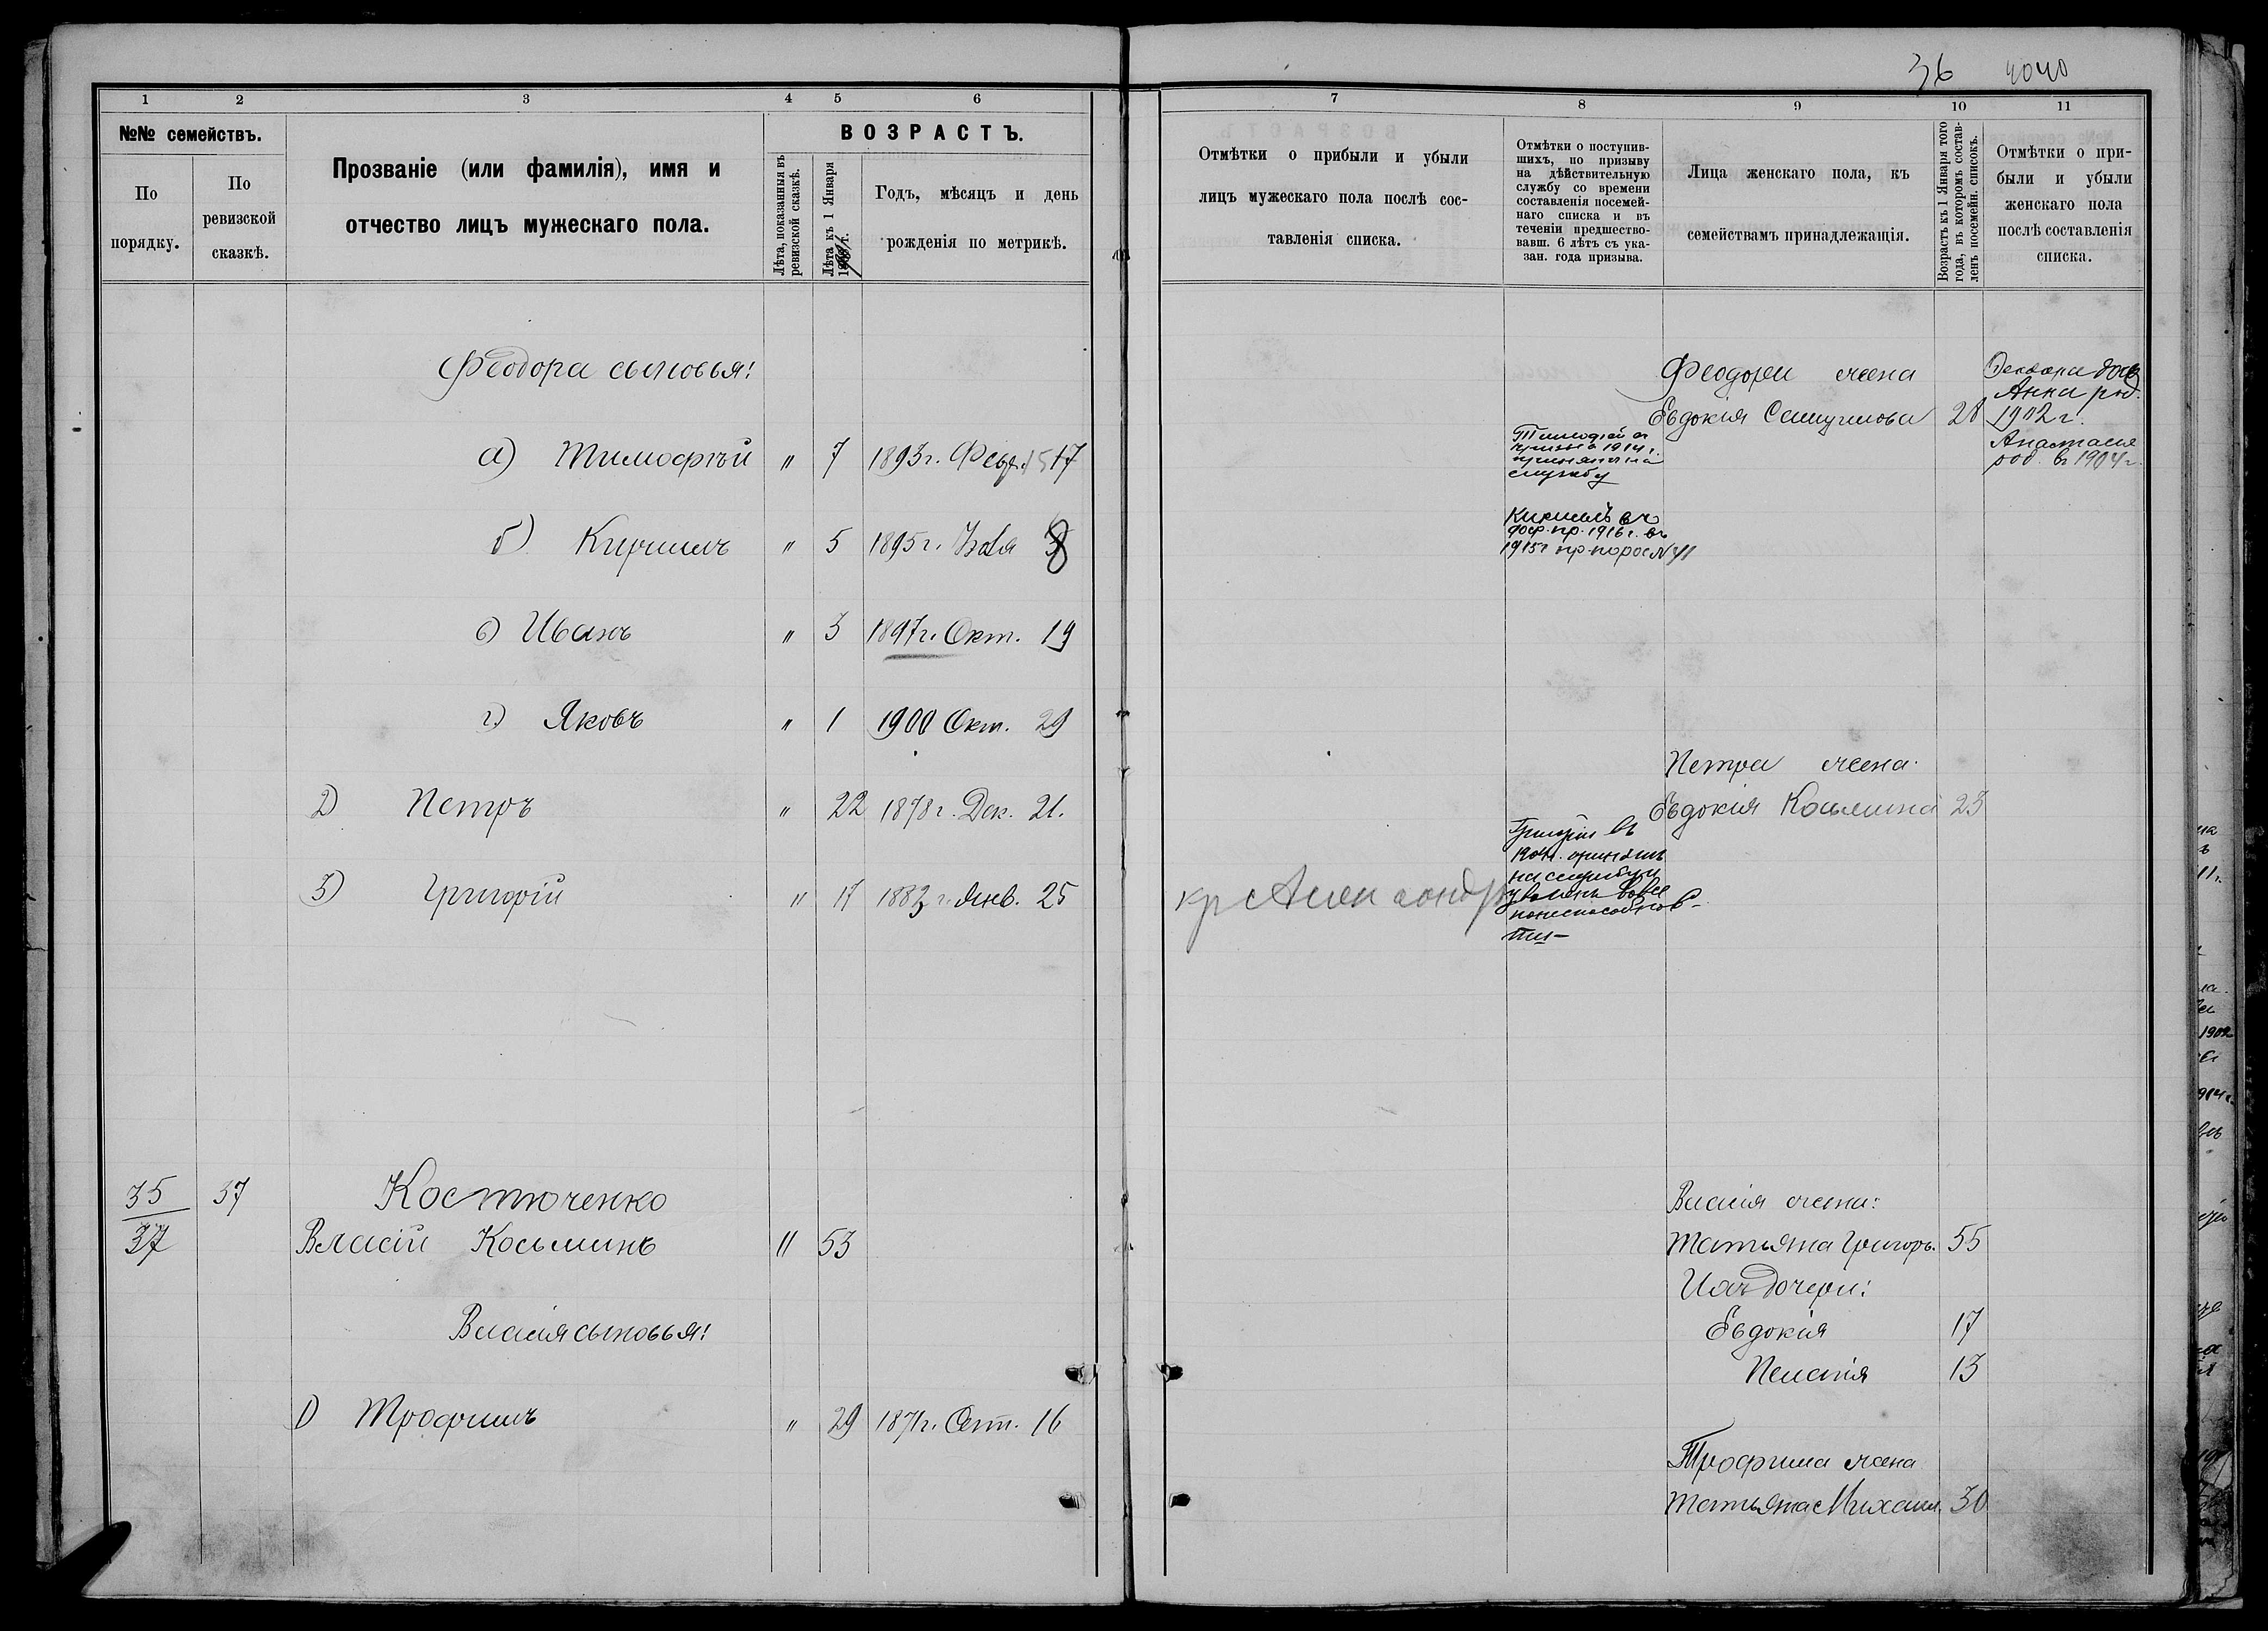 36 4040
1 2 3 4 5 6
№№ семействъ.
По порядку.
По ревизской сказкѣ.
Прозваніе (или фамилія), имя и
отчество лицъ мужескаго пола.
ВОЗРАСТЪ.
Лѣта, показанныя въ
ревизской сказкѣ.
Лѣта къ 1 Января
Годъ, мѣсяцъ и день
рожденія по метрикѣ.
Феодора сыновья:
а) Тимофѣй " 7 1893 г. Февр. 17
б) Кириллъ " 5 1895 г. 8
в) Иванъ " 3 1897 г. Окт. 19
г) Яковъ " 1 1900 Окт. 29
2) Петръ " 22 1878 г. Дек. 21.
3) Григорій " 17 1883 г. Янв. 25
35 37 Костюченко
37 Власій Косьминъ " 53
Власія сыновья:
1) Трофимъ " 29 1871 г. Сент. 16
7 8 9 10 11
Отмѣтки о прибыли и убыли
лицъ мужескаго пола послѣ сос-
тавленія списка.
Отмѣтки о поступив-
шихъ, по призыву
на дѣйствительную
службу со времени
составленія посемей-
наго списка и въ
теченіи предшество-
вавш. 6 лѣтъ съ ука-
зан. года призыва.
Лица женскаго пола, къ
семействамъ принадлежащія.
Возрастъ къ 1 Января того
года, въ которомъ состав-
ленъ посемейн. списокъ.
Отмѣтки о при-
были и убыли
женскаго пола
послѣ составленія
списка.
Феодора жена
Евдокія 28
Феодора дочь
Анна род.
1902 г.
Анастасія
род. въ 1904 г.
Тимофей въ
призывъ 1914 г.
принятъ на
службу
Кириллъ въ
дос. пр. 1916 г. въ
1915 г
Петра жена
Евдокія Косьмина 23
Григорій въ
1904 г. принятъ
на службу и
уволенъ вовсе
по неспособнос-
ти
Власія жена:
Татьяна Григорь. 55
Ихъ дочери:
Евдокія 17
Пелагія 13
Трофима жена
Татьяна Михаил. 30